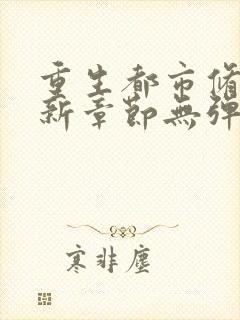 重生都市脩
新章節無彈
寒非塵